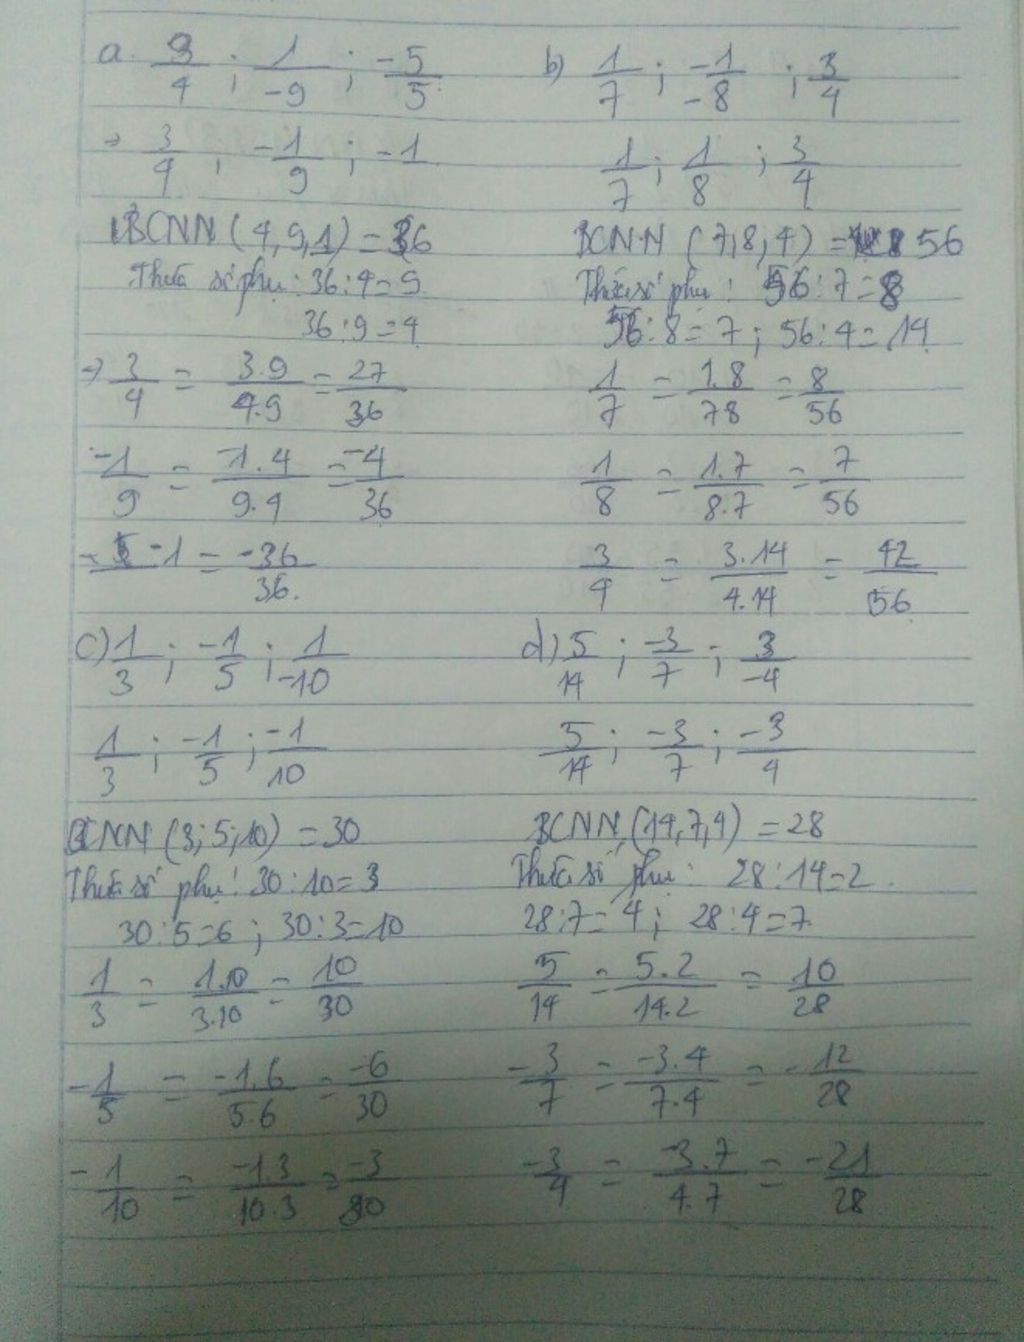 a. 3/4 ; 1/-9 ; -5/5
→ 3/4 ; -1/9 ; -1
BCNN (4,9,1) = 36
Thừa số phụ: 36:4=9
36:9=4
→ 3/4 = 3.9/4.9 = 27/36
-1/9 = -1.4/9.4 = -4/36
-1 = -36/36.
b) 1/7 ; -1/-8 ; 3/4
1/7 ; 1/8 ; 3/4
BCNN (7,8,4) = 56
Thừa số phụ: 56:7=8
56:8=7; 56:4=14
1/7 = 1.8/78 = 8/56
1/8 = 1.7/8.7 = 7/56
3/4 = 3.14/4.14 = 42/56
c) 1/3 ; -1/5 ; 1/-10
1/3 ; -1/5 ; -1/10
BCNN (3;5;10) = 30
Thừa số phụ: 30:10=3
30:5=6; 30:3=10
1/3 = 1.10/3.10 = 10/30
-1/5 = -1.6/5.6 = -6/30
-1/10 = -1.3/10.3 = -3/30
d) 5/14 ; -3/7 ; 3/-4
5/14 ; -3/7 ; -3/4
BCNN (14,7,4) = 28
Thừa số phụ: 28:14=2.
28:7=4; 28:4=7
5/14 = 5.2/14.2 = 10/28
-3/7 = -3.4/7.4 = -12/28
-3/4 = -3.7/4.7 = -21/28